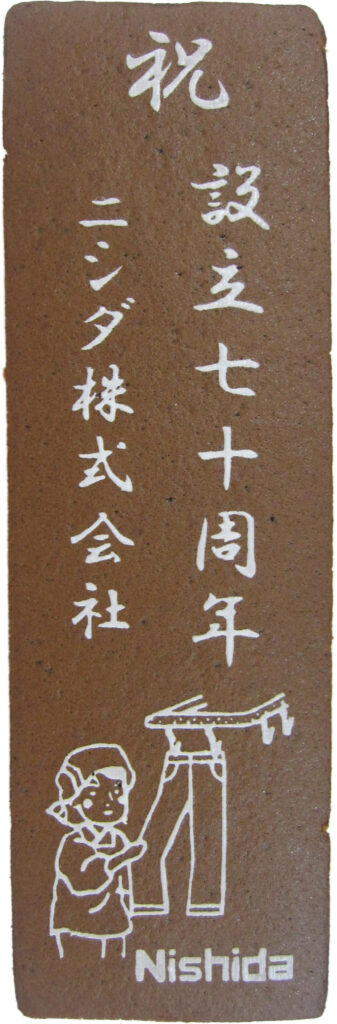 祝
設立七十周年
ニシダ株式会社
Nishida